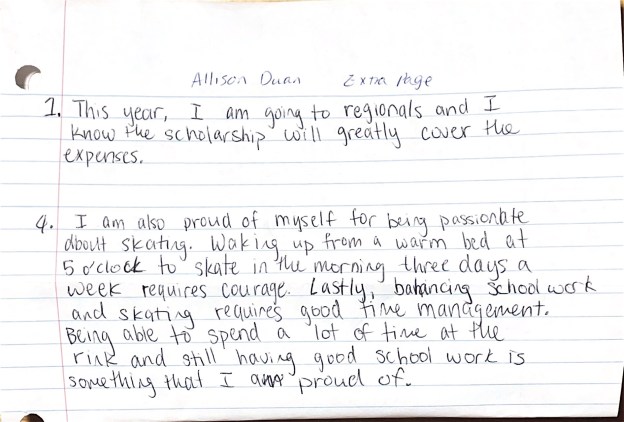 Allison Duan Extra Page
1. This year, I am going to regionals and I
know the scholarship will greatly cover the
expenses.
4. I am also proud of myself for being passionate
about skating. Waking up from a warm bed at
5 o'clock to skate in the morning three days a
week requires courage. Lastly, balancing school work
and skating requires good time management.
Being able to spend a lot of time at the
rink and still having good school work is
something that I am proud of.